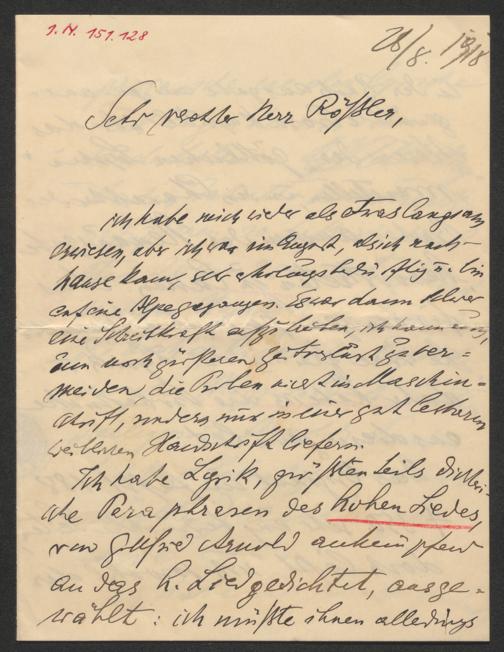 I.N. 151.128
26/8. 1918
Sehr verehrter Herr Rößler,
ich habe mich wieder als etwas langsam
erwiesen, aber ich war im August, als ich nach-
hause kam, sehr erholungsbedürftig u. bin
auf eine Alpe gegangen. Es war dann schwer
eine Schreibkraft aufzutreiben, ich kann
um noch größeren Zeitverlust zu ver-
meiden, die Proben nicht in Maschin-
schrift, sondern nur in einer gut lesbaren
weiblichen Handschrift liefern.
Ich habe Lyrik, größtenteils dichteri-
sche Paraphrasen des Hohen Liedes,
von Gottfried Arnold anknüpfend
an das h. Lied gedichtet, ausge-
wählt: ich müßte ihnen allerdings